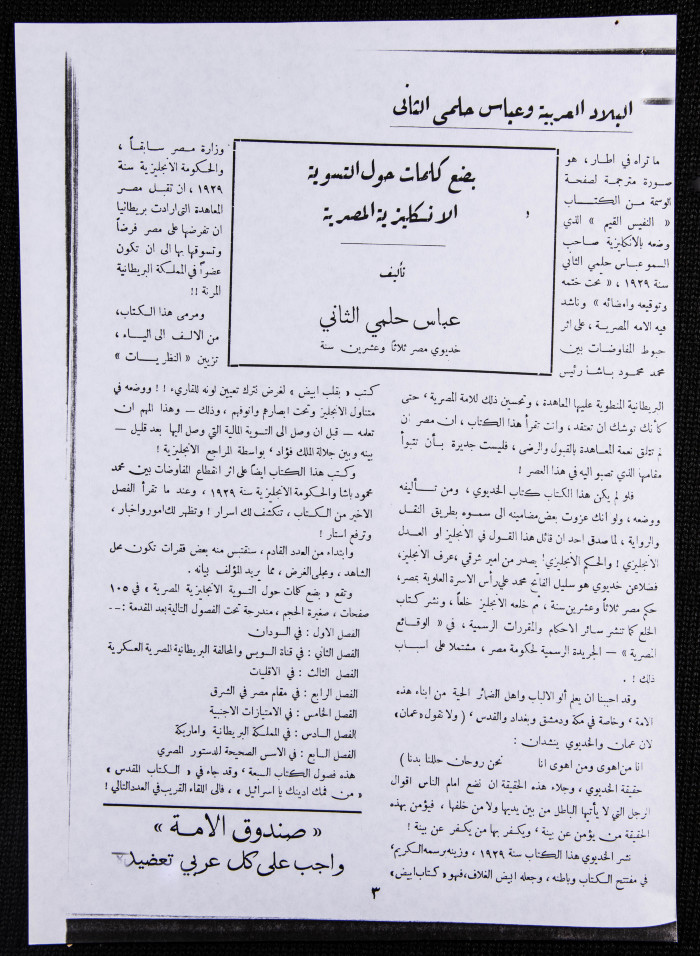 البلاد العربية وعباس حلمي الثاني
ما تراه في اطار ، هو
صورة مترجمة لصفحة
الوسمة من الكتاب
« النفيس القيم » الذي
وضعه بالانكليزية صاحب
السمو عباس حلمي الثاني
سنة ١٩٢٩ ، « تحت ختمه
وتوقيعه وامضائه » وناشد
فيه الامه المصرية ، على اثر
حبوط المفاوضات بين
محمد محمود باشا رئيس
بضع كلمات حول التسوية
الانكليزية المصرية
تأليف
عباس حلمي الثاني
خديوي مصر ثلاثاً وعشرين سنة
وزارة مصر سابقاً ،
والحكومة الانجليزية سنة
١٩٢٩ ، ان تقبل مصر
المعاهدة التي ارادت بريطانيا
ان تفرضها على مصر فرضاً
وتسوقها بها الى ان تكون
عضواً في المملكة البريطانية
المرنة !!
ومرمى هذا الكتاب ،
من الالف الى الياء ،
تزيين « النظريات »
البريطانية المنطوية عليها المعاهدة ، وتحسين ذلك للامة المصرية ، حتى
كأنك توشك ان تعتقد ، وانت تقرأ هذا الكتاب ، ان مصر ان
لم تتلق نعمة المعاهدة بالقبول والرضى ، فليست جديرة بأن تتبوأ
مقامها الذي تصبو اليه في هذا العصر !
فلو لم يكن هذا الكتاب كتاب الخديوي ، ومن تأليفه
ووضعه ، ولو انك عزوت بعض مضامينه الى سموه بطريق النقل
والرواية ، لما صدق احد ان قائل هذا القول في الانجليز او العدل
الانجليزي ! والحكم الانجليزي ! يصدر من امير شرقي ، عرف الانجليز ،
فضلا عن خديوي هو سليل الفاتح محمد علي رأس الاسرة العلوية بمصر ،
حكم مصر ثلاثاً وعشرين سنة ، ثم خلعه الانجليز خلعاً ، ونشر كتاب
الخلع كما تنشر سائر الاحكام والمقررات الرسمية ، في « الوقائع
المصرية » — الجريدة الرسمية لحكومة مصر ، مشتملا على اسباب
ذلك ! .
وقد احببنا ان يعلم ألو الالباب واهل الضمائر الحية من ابناء هذه
الامة ، وخاصة في مكة ودمشق وبغداد والقدس ، ( ولا نقول « عمان »
لان عمان والخديوي ينشدان :
انا من اهوى ومن اهوى انا نحن روحان حللنا بدنا )
حقيقة الخديوي ، وجلاء هذه الحقيقة ان نضع امام الناس اقوال
الرجل التي لا يأتيها الباطل من بين يديها ولا من خلفها ، فيؤمن بهذه
الحقيقة من يؤمن عن بينة ، ويكفر بها من يكفر عن بينة !
نشر الخديوي هذا الكتاب سنة ١٩٢٩ ، وزينه برسمه الكريم ،
في مفتتح الكتاب وباطنه ، وجعله ابيض الغلاف ، فهو « كتاب ابيض »
كتب « بقلب ابيض » لغرض نترك تعيين لونه للقارىء !! ووضعه في
متناول الانجليز وتحت ابصارهم وانوفهم ، وذلك — وهذا المهم ان
تعلمه — قبل ان وصل الى التسوية المالية التي وصل اليها بعد قليل —
بينه وبين جلالة الملك فؤاد ، بواسطة المراجع الانجليزية !
وكتب هذا الكتاب ايضاً على اثر انقطاع المفاوضات بين محمد
محمود باشا والحكومة الانجليزية سنة ١٩٢٩ ، وعند ما تقرأ الفصل
الاخير من الكتاب ، تنكشف لك اسرار ! وتظهر لك امور واخبار ،
وترفع استار !
وابتداء من العدد القادم ، سنقتبس منه بعض فقرات تكون محل
الشاهد ، ومجلى الغرض ، مما يريد المؤلف بيانه .
وتقع « بضع كلمات حول التسوية الانجليزية المصرية » في ١٠٥
صفحات ، صغيرة الحجم ، مندرجة تحت الفصول التالية بعد المقدمة : —
الفصل الاول : في السودان
الفصل الثاني : في قناة السويس والمحالفة البريطانية المصرية العسكرية
الفصل الثالث : في الاقليات
الفصل الرابع : في مقام مصر في الشرق
الفصل الخامس : في الامتيازات الاجنبية
الفصل السادس : في المملكة البريطانية واماريكة
الفصل السابع : في الاسس الصحيحة للدستور المصري
هذه فصول الكتاب السبعة ، وقد جاء في « الكتاب المقدس »
« من فمك ادينك يا اسرائيل » ، فالى اللقاء القريب في العدد التالي !
« صندوق الامة »
واجب على كل عربي تعضيده
٣